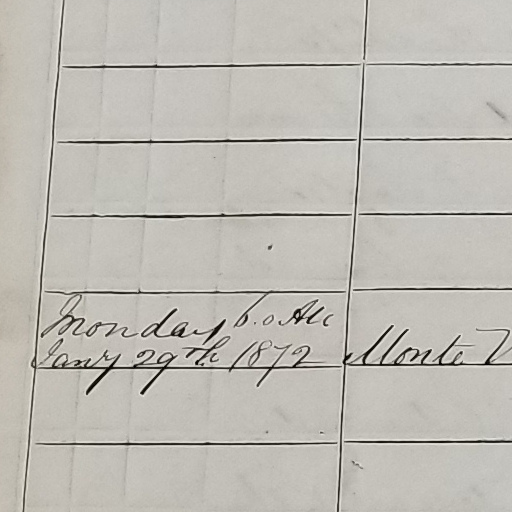 Monday 6.0 AM
Jany 29th 1872 Monte V